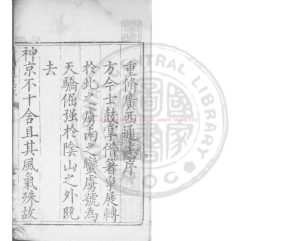 重修廣西通志序
方今士鼓掌借箸爭展轉
於北之虜南之蠻虜號為
天驕倔强於陰山之外既
去
神京不十舍且其風氣殊故